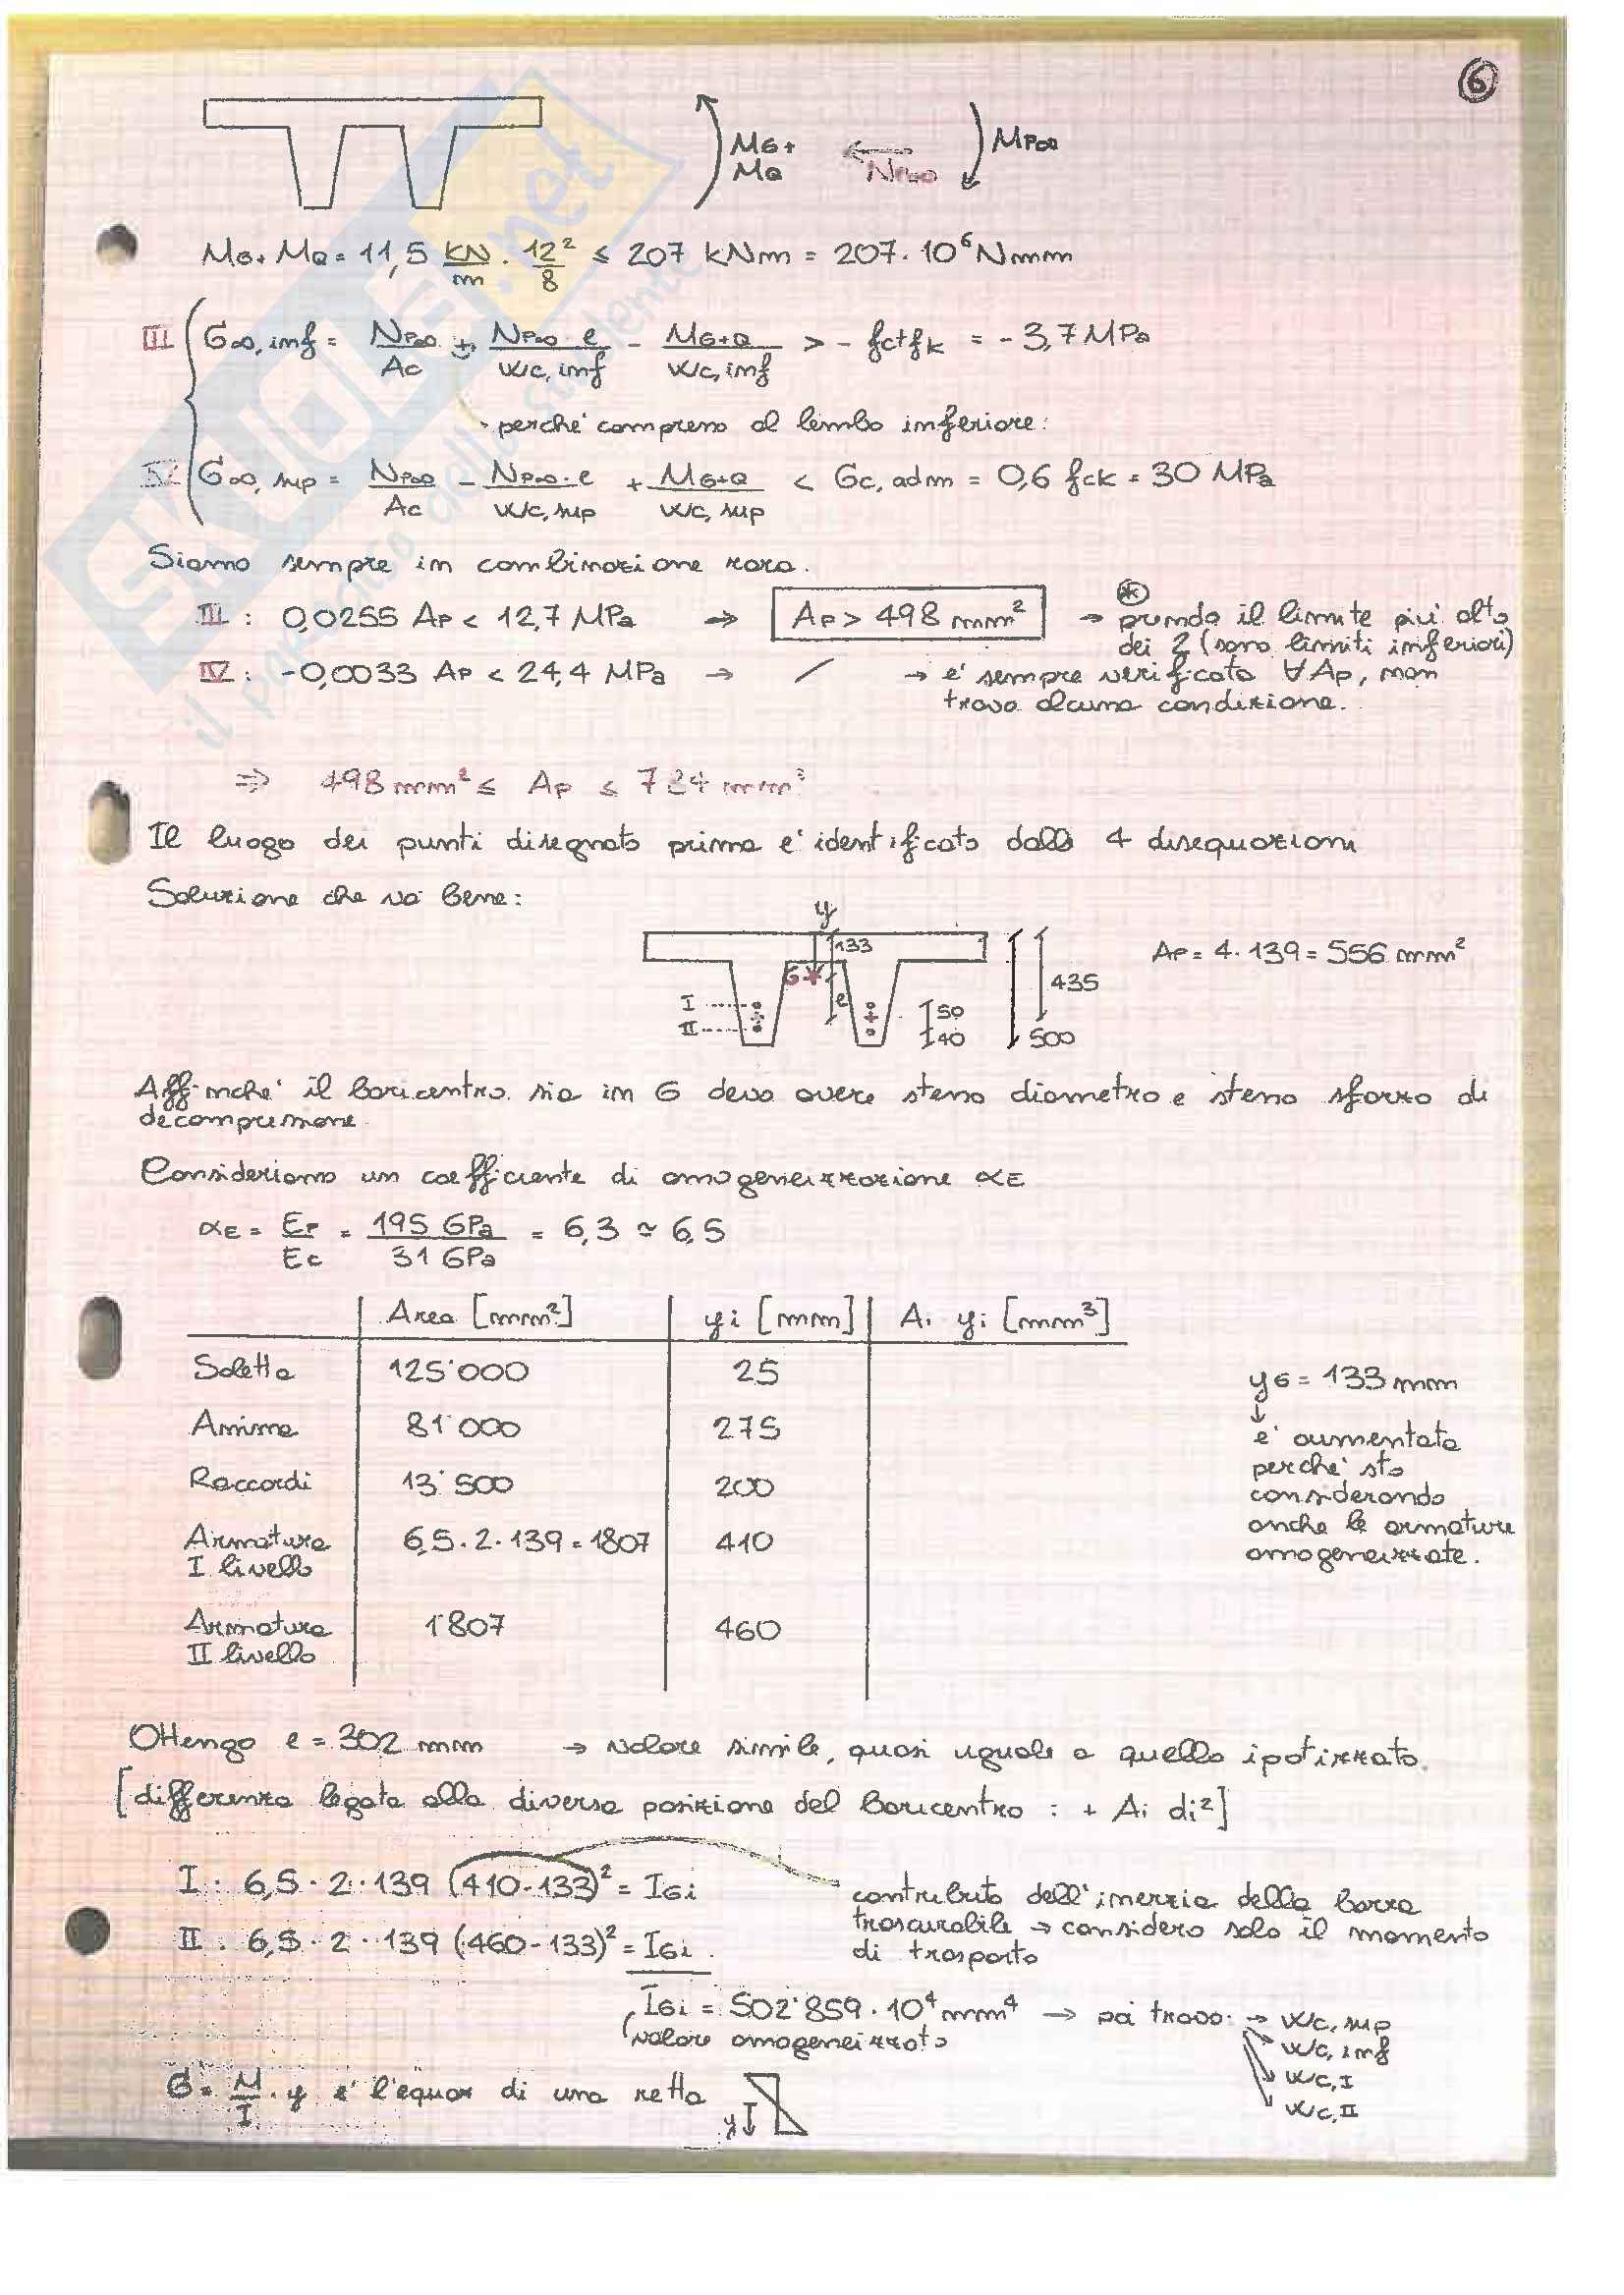 6
MG+
MQ
NP∞
MP∞
MG+MQ = 11,5 KN/m · 12²/8 ≤ 207 KNm = 207·10⁶ Nmm
III σ∞,inf = NP∞/Ac + NP∞ e/Wc,inf - MG+Q/Wc,inf > - fctfk = -3,7 MPa
perche' compreso al lembo inferiore:
IV σ∞,sup = NP∞/Ac - NP∞·e/Wc,sup + MG+Q/Wc,sup < σc,adm = 0,6 fck = 30 MPa
Siamo sempre in combinazione rara.
III : 0,0255 Ap < 12,7 MPa ⇒ Ap > 498 mm² → prendo il limite piu' alto
dei 2 (sono limiti inferiori)
IV : -0,0033 Ap < 24,4 MPa → / → e' sempre verificata ∀Ap, non
trovo alcuna condizione.
⇒ 498 mm² ≤ Ap ≤ 784 mm²
Il luogo dei punti disegnato prima e' identificato dalle 4 disequazioni
Soluzione che va bene:
y
133
G
e
I
II
50
40
435
500
Ap = 4·139 = 556 mm²
Affinche' il baricentro sia in G devo avere stesso diametro e stesso sforzo di
decompressione
Consideriamo un coefficiente di omogeneizzazione αE
αE = Ep/Ec = 195 GPa/31 GPa = 6,3 ≃ 6,5
Area [mm²] yi [mm] Ai yi [mm³]
Soletta 125'000 25
Anima 81'000 275
Raccordi 13'500 200
Armatura I livello 6,5·2·139 = 1807 410
Armatura II livello 1'807 460
yG = 133 mm
↓
e' aumentata
perche' sto
considerando
anche le armature
omogeneizzate.
Ottengo e = 302 mm → valore simile, quasi uguale a quello ipotizzato.
[differenza legata alla diversa posizione del baricentro : + Ai di²]
I : 6,5·2·139 (410-133)² = IGi
II : 6,5·2·139 (460-133)² = IGi
contributo dell'inerzia della barra
trascurabile → considero solo il momento
di trasporto
IGi = 502'859·10⁴ mm⁴ → poi trovo: → Wc,sup
valore omogeneizzato
Wc,inf
Wc,I
Wc,II
σ = M/I · y e' l'equaz di una retta
y